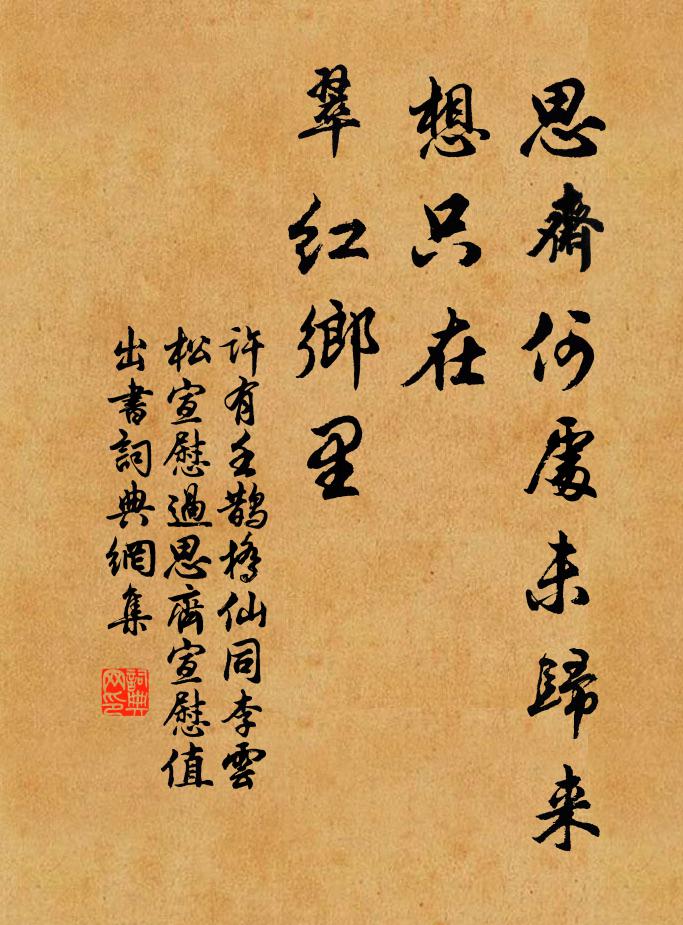 思齋何處未歸来
想只在
翠红鄉里
許有壬鵲橋仙同李雲
松宣慰過思齊宣慰值
出書詞典網集
詞典网印